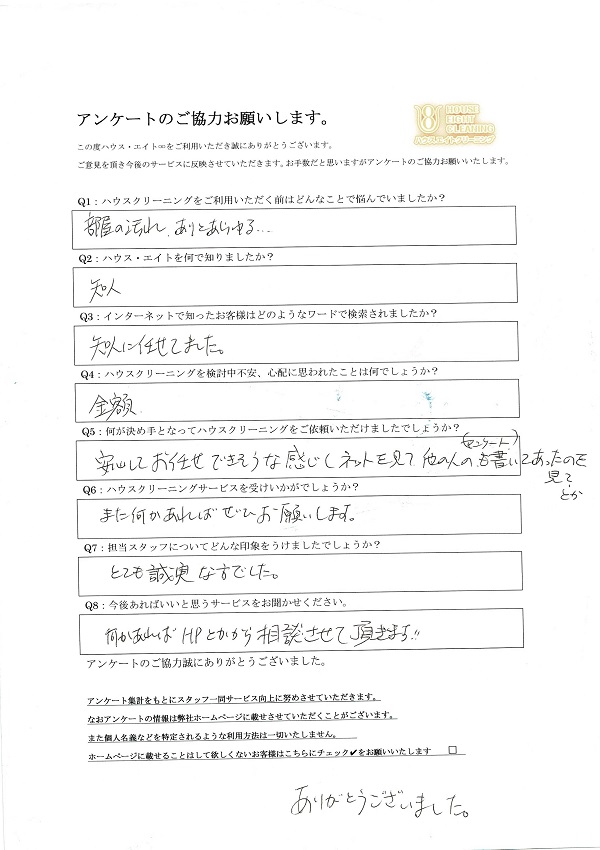 アンケートのご協力お願いします。
HOUSE
EIGHT
CLEANING
ハウス・エイト・クリーニング
この度ハウス・エイト∞をご利用いただき誠にありがとうございます。
ご意見を頂き今後のサービスに反映させていただきます。お手数だと思いますがアンケートのご協力お願いいたします。
Q1：ハウスクリーニングをご利用いただく前はどんなことで悩んでいましたか？
部屋の汚れ、ありとあらゆる...
Q2：ハウス・エイトを何で知りましたか？
知人
Q3：インターネットで知ったお客様はどのようなワードで検索されましたか？
知人に任せてました。
Q4：ハウスクリーニングを検討中不安、心配に思われたことは何でしょうか？
金額
Q5：何が決め手となってハウスクリーニングをご依頼いただけましたでしょうか？
(センケート)
安心してお任せできそうな感じしネットを見て他の人の書いてあったのを
見て
とか
Q6：ハウスクリーニングサービスを受けいかがでしょうか？
また何かあればぜひお願いします。
Q7：担当スタッフについてどんな印象をうけましたでしょうか？
とても誠実な方でした。
Q8：今後あればいいと思うサービスをお聞かせください。
何かあればHPとかから相談させて頂きます!!
アンケートのご協力誠にありがとうございました。
アンケート集計をもとにスタッフ一同サービス向上に努めさせていただきます。
なおアンケートの情報は弊社ホームページに載せさせていただくことがございます。
また個人名義などを特定されるような利用方法は一切いたしません。
ホームページに載せることはして欲しくないお客様はこちらにチェック✔をお願いいたします □
ありがとうございました。